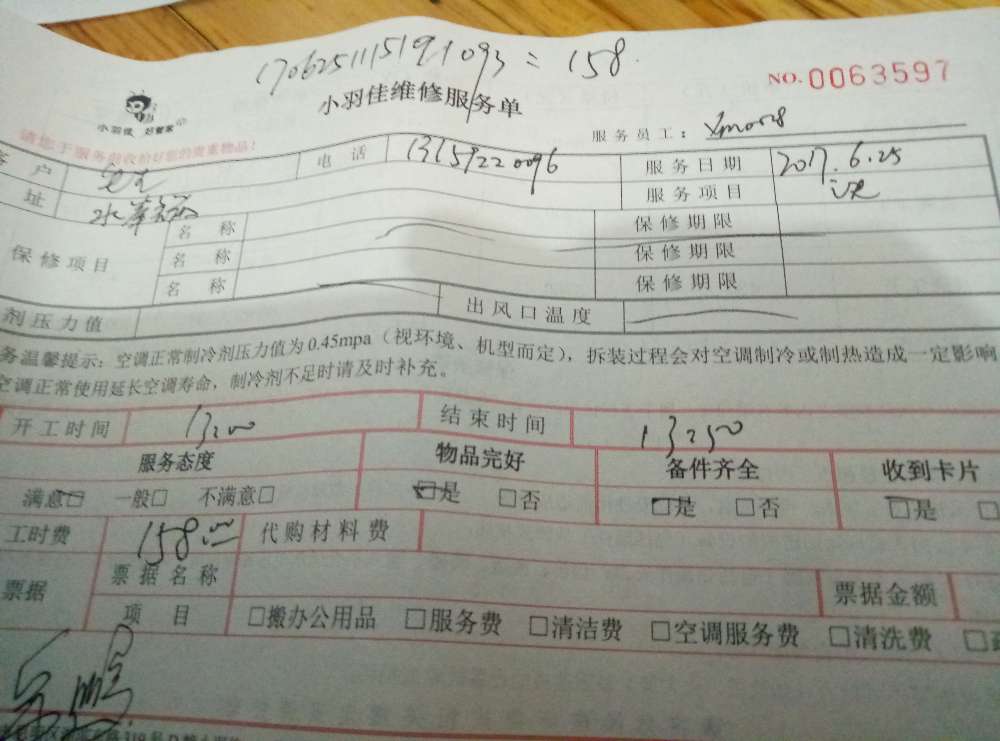 1706251115191093 = 158.
NO. 0063597
小羽佳维修服务单
小羽佳 好管家
服务员工：
请您于服务前收拾好您的贵重物品！
客户 电话 13159220096 服务日期 2017.6.25
址 服务项目
保修项目 名称 保修期限
名称 保修期限
名称 保修期限
剂压力值 出风口温度
务温馨提示：空调正常制冷剂压力值为0.45mpa（视环境、机型而定），拆装过程会对空调制冷或制热造成一定影响
空调正常使用延长空调寿命，制冷剂不足时请及时补充。
开工时间 13:00 结束时间 13:50
服务态度 物品完好 备件齐全 收到卡片
满意□ 一般□ 不满意□ □是 □否 □是 □否 □是
工时费 158.00 代购材料费
票据 票据名称 票据金额
项目 □搬办公用品 □服务费 □清洁费 □空调服务费 □清洗费